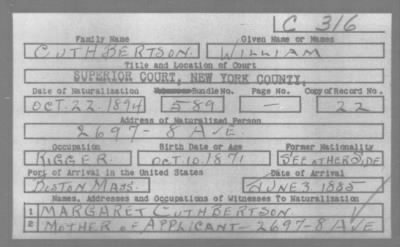 C 316
Family Name Given Name or Names
CUTHBERTSON. WILLIAM
Title and Location of Court
SUPERIOR COURT, NEW YORK COUNTY,
Date of Naturalization Bundle No. Page No. Copy of Record No.
OCT. 22. 1894 589 — 22
Address of Naturalized Person
2697 - 8 AVE.
Occupation Birth Date or Age Former Nationality
RIGGER OCT. 10. 1871 SEE OTHER SIDE
Port of Arrival in the United States Date of Arrival
BOSTON MASS. JUNE 3. 1885
Names, Addresses and Occupations of Witnesses To Naturalization
1 MARGARET CUTHBERTSON
2 MOTHER OF APPLICANT - 2697 - 8 AVE